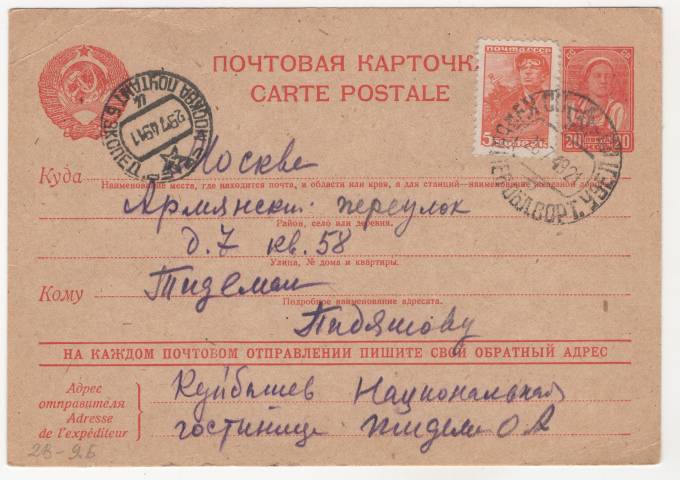 ПОЧТОВАЯ КАРТОЧКА
CARTE POSTALE
ПОЧТА СССР
5
20 20
МОСКВА ПОЧТАМТ 6 ЭКСПЕД.
29 7 49 11
Куда Москве
Наименование места, где находится почта, и области или края, а для станций—наименование железной дороги
Армянский переулок
Район, село или деревня.
д. 7 кв. 58
Улица, № дома и квартиры.
Кому Тидеман
Подробное наименование адресата.
НА КАЖДОМ ПОЧТОВОМ ОТПРАВЛЕНИИ ПИШИТЕ СВОЙ ОБРАТНЫЙ АДРЕС
Адрес отправителя
Adresse de l'expéditeur
Куйбышев Национальная
гостиница
28-9.Б